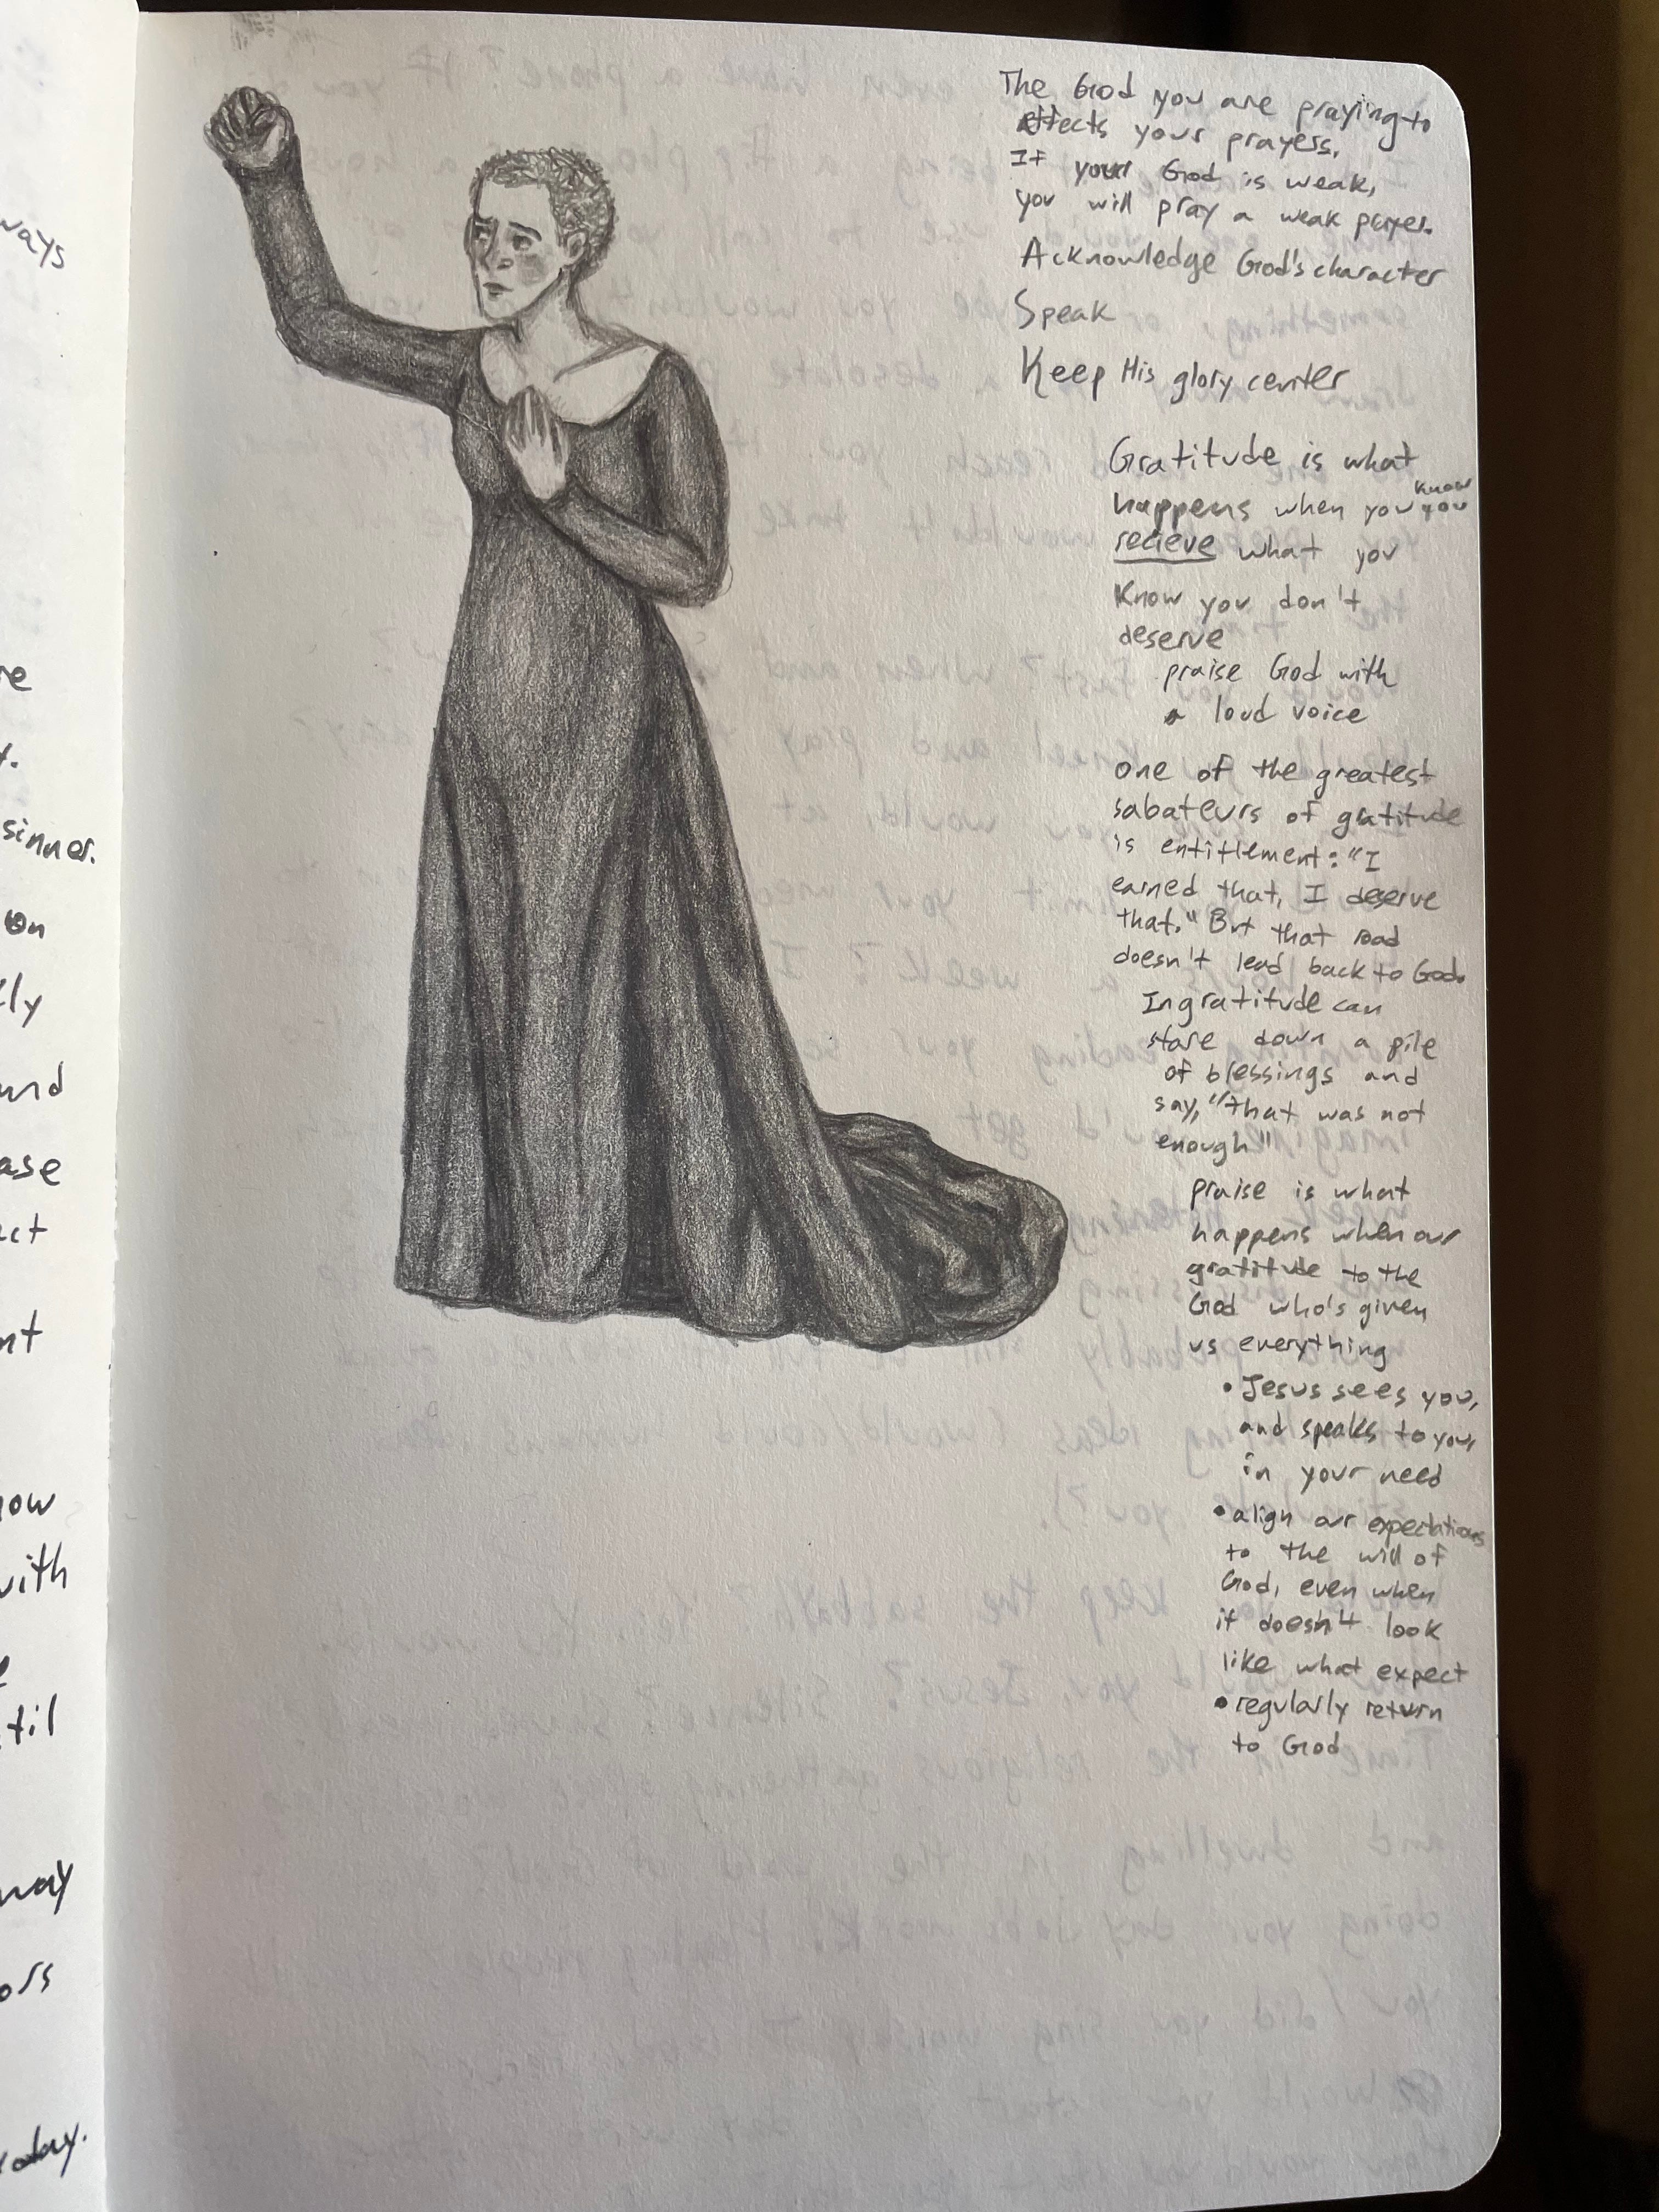 ways
re
y.
sinner.
on
tly
und
ase
act
nt
now
with
e
til
way
oss
today.
The God you are praying to
affects your prayers.
If your God is weak,
you will pray a weak prayer.
Acknowledge God's character
Speak
Keep His glory center
Gratitude is what
know
happens when you you
recieve what you
know you don't
deserve
praise God with
a loud voice
one of the greatest
sabateurs of gratitude
is entitlement: "I
earned that, I deserve
that." But that road
doesn't lead back to God.
Ingratitude can
stare down a pile
of blessings and
say, "that was not
enough"
praise is what
happens when our
gratitude to the
God who's given
us everything
• Jesus sees you,
and speaks to you,
in your need
• align our expectations
to the will of
God, even when
it doesn't look
like what expect
• regularly return
to God